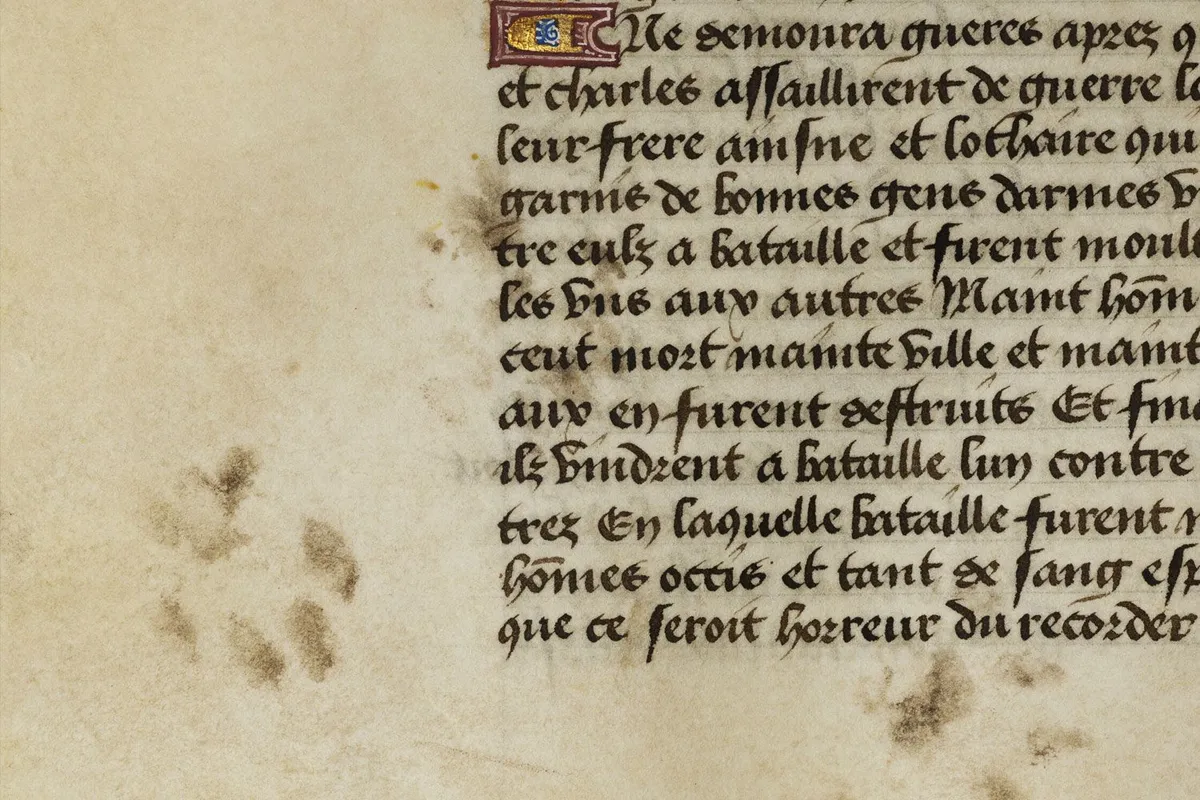 Ne demoura gueres aprez q
et charles assaillirent de guerre lo
leur frere ainsne et lothaire qui
garnis de bonnes gens darmes v
tre eulz a bataille et firent moult
les vns aux autres Maint hōm
ceut mort mainte ville et maint
aux en furent destruits Et fina
ilz vindrent a bataille lun contre
trez En laquelle bataille furent
hōmes occis et tant de sang esp
que ce seroit horreur du recorder